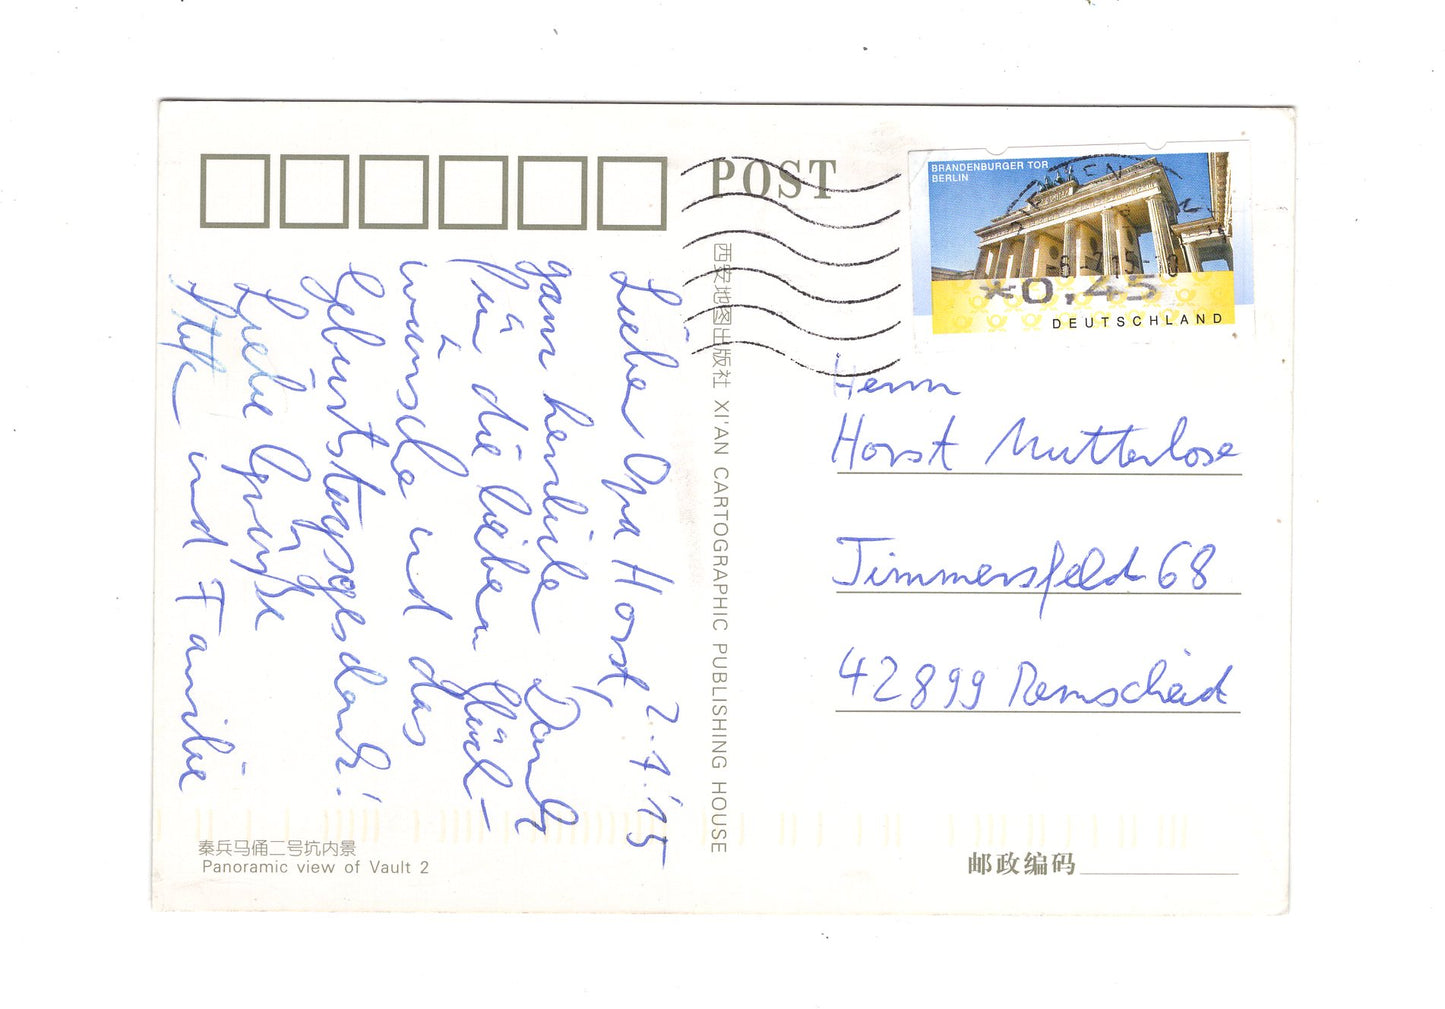 POST
BRANDENBURGER TOR
BERLIN
*0,45
DEUTSCHLAND
2.1.'15
Lieber Opa Horst,
ganz herzlichen Dank
für die lieben Glück-
wünsche und das
Geburtstagsgeschenk!
Liebe Grüße
und Familie
西安地图出版社 XI'AN CARTOGRAPHIC PUBLISHING HOUSE
Herrn
Horst Mutterlose
Timmersfeld 68
42899 Remscheid
秦兵马俑二号坑内景
Panoramic view of Vault 2
邮政编码